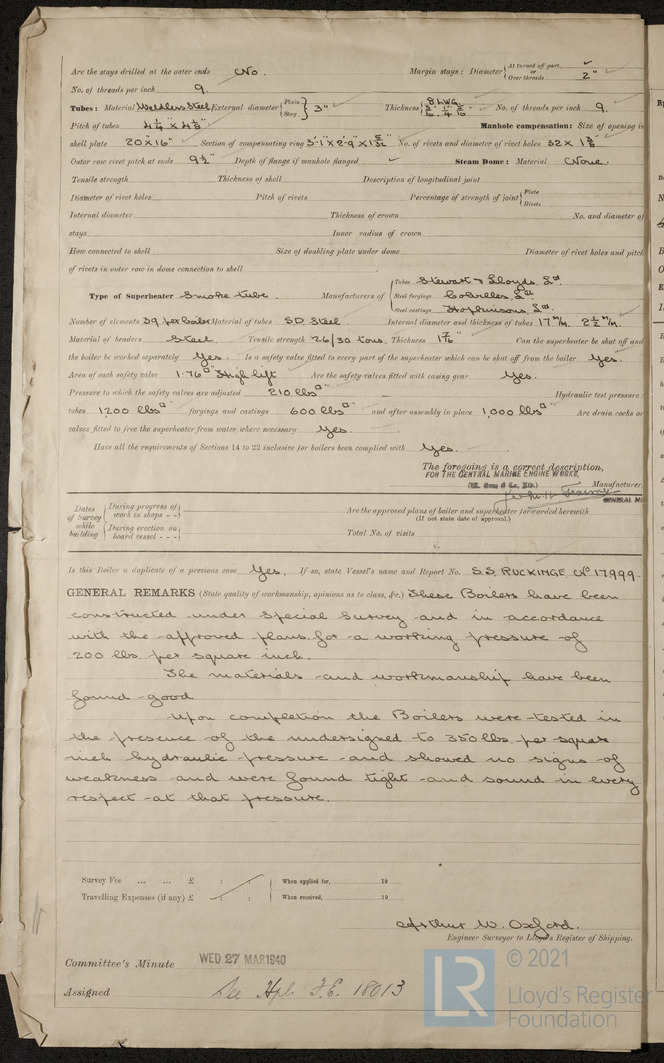 Are the stays drilled at the outer ends No. Margin stays: Diameter { At turned off part, or Over threads 2"
No. of threads per inch 9.
Tubes: Material Weldless Steel External diameter { Plain Stay } 3" Thickness { 8 LWG. No. of threads per inch 9.
Pitch of tubes 4 1/4" x 4 1/8" Manhole compensation: Size of opening in
shell plate 20" x 16" Section of compensating ring 3'-1" x 2'-9" x 1 5/32" No. of rivets and diameter of rivet holes 32 x 1 3/8"
Outer row rivet pitch at ends 9 1/2" Depth of flange if manhole flanged Steam Dome: Material None.
Tensile strength Thickness of shell Description of longitudinal joint
Diameter of rivet holes Pitch of rivets Percentage of strength of joint { Plate Rivets
Internal diameter Thickness of crown No. and diameter of
stays Inner radius of crown
How connected to shell Size of doubling plate under dome Diameter of rivet holes and pitch
of rivets in outer row in dome connection to shell
Type of Superheater Smoke tube. Manufacturers of { Tubes Stewart & Lloyds Ld
Steel forgings Colvilles Ld
Steel castings Hopkinsons, Ld.
Number of elements 39 per boiler Material of tubes S.D. Steel. Internal diameter and thickness of tubes 17 m/m. 2 1/2 m/m.
Material of headers Steel. Tensile strength 26/30 tons. Thickness 1 7/16" Can the superheater be shut off and
the boiler be worked separately Yes. Is a safety valve fitted to every part of the superheater which can be shut off from the boiler Yes.
Area of each safety valve 1.76 □" High lift Are the safety valves fitted with easing gear Yes.
Pressure to which the safety valves are adjusted 210 lbs □" Hydraulic test pressure:
tubes 1200 lbs □" forgings and castings 600 lbs □" and after assembly in place 1,000 lbs □" Are drain cocks or
valves fitted to free the superheater from water where necessary Yes.
Have all the requirements of Sections 14 to 22 inclusive for boilers been complied with Yes.
The foregoing is a correct description,
FOR THE CENTRAL MARINE ENGINE WORKS,
(Wm. Gray & Co., Ltd.) Manufacturer.
Dates of Survey while building { During progress of work in shops - - Are the approved plans of boiler and superheater forwarded herewith
(If not state date of approval.)
During erection on board vessel - - - Total No. of visits
Is this Boiler a duplicate of a previous case Yes. If so, state Vessel's name and Report No. S.S. RUCKINGE. No 17999.
GENERAL REMARKS (State quality of workmanship, opinions as to class, &c.) These Boilers have been
constructed under special survey and in accordance
with the approved plans for a working pressure of
200 lbs. per square inch.
The materials and workmanship have been
found good
Upon completion the Boilers were tested in
the presence of the undersigned to 350 lbs. per square
inch hydraulic pressure and showed no signs of
weakness and were found tight and sound in every
respect at that pressure.
Survey Fee ... ... £ : : When applied for, 19
Travelling Expenses (if any) £ : : When received, 19
Arthur W. Oxford.
Engineer Surveyor to Lloyd's Register of Shipping.
Committee's Minute WED 27 MAR 1940
Assigned See Hpl. F.E. 18013
© 2021
LR
Lloyd's Register
Foundation